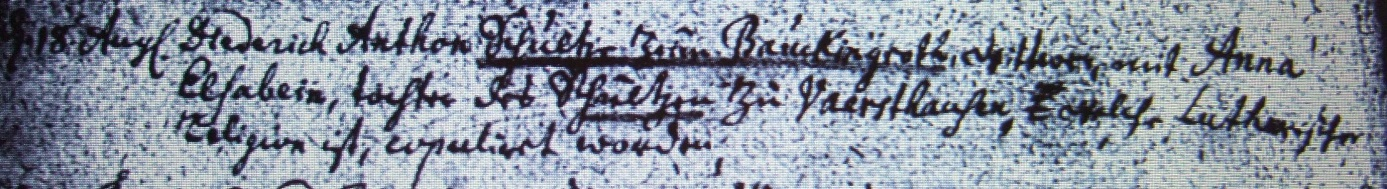 d. 18. Aug. Diederich Anthon Schultze zum Bauckingroth, Witwer, mit Anna
Elsabein, tochter des Schultzen zu Vaersthausen, welche Lutherischer
Religion ist, copuliret worden.